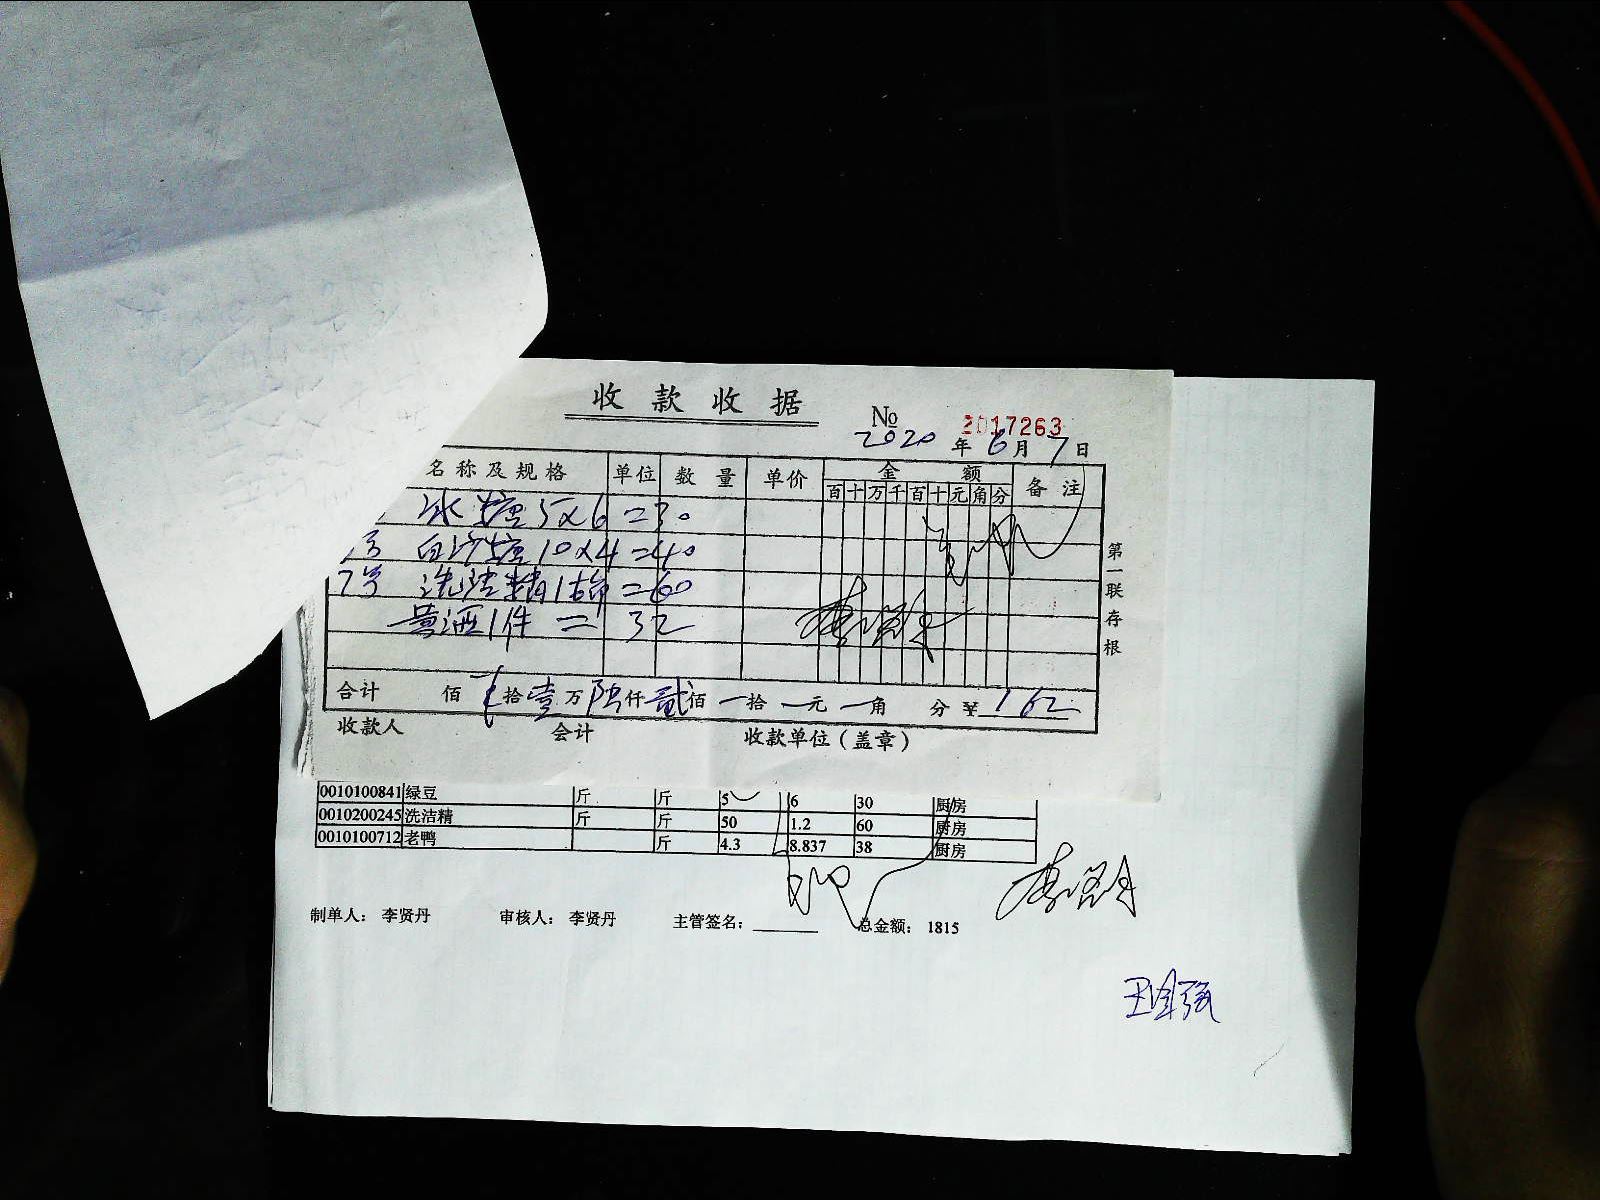 收款收据
№ 2017263
2020年6月7日
名称及规格 单位 数量 单价 金额 备注
百 十 万 千 百 十 元 角 分
冰糖5x6=30
白沙糖10x4=40
7号 洗洁精1桶=60
黄酒1件=32
第一联存根
合计 佰 拾壹万陆仟贰佰 拾 元 角 分 ¥ 162
收款人 会计 收款单位(盖章)
0010100841 绿豆 斤 斤 5 6 30 厨房
0010200245 洗洁精 斤 斤 50 1.2 60 厨房
0010100712 老鸭 斤 4.3 8.837 38 厨房
制单人: 李贤丹 审核人: 李贤丹 主管签名: 总金额: 1815